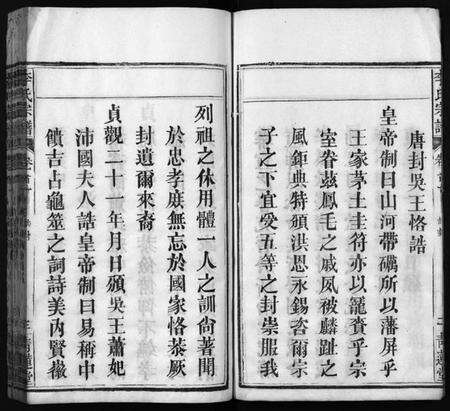 唐封吳王恪誥
皇帝制曰山河帶礪所以藩屏乎
王家茅土圭符亦以寵賁乎宗
室眷茲鳳毛之戚夙被麟趾之
風鉅典特頒淇恩永錫咨爾宗
子之下宜受五等之封崇服我
列祖之休用體一人之訓尚著聞
於忠孝庶無忘於國家恪恭厥
封遺爾來裔
貞觀二十一年月日頒吳王蕭妃
沛國夫人誥皇帝制曰易稱中
饋吉占龜筮之詞詩美內賢徽
李氏宗譜
李氏宗譜